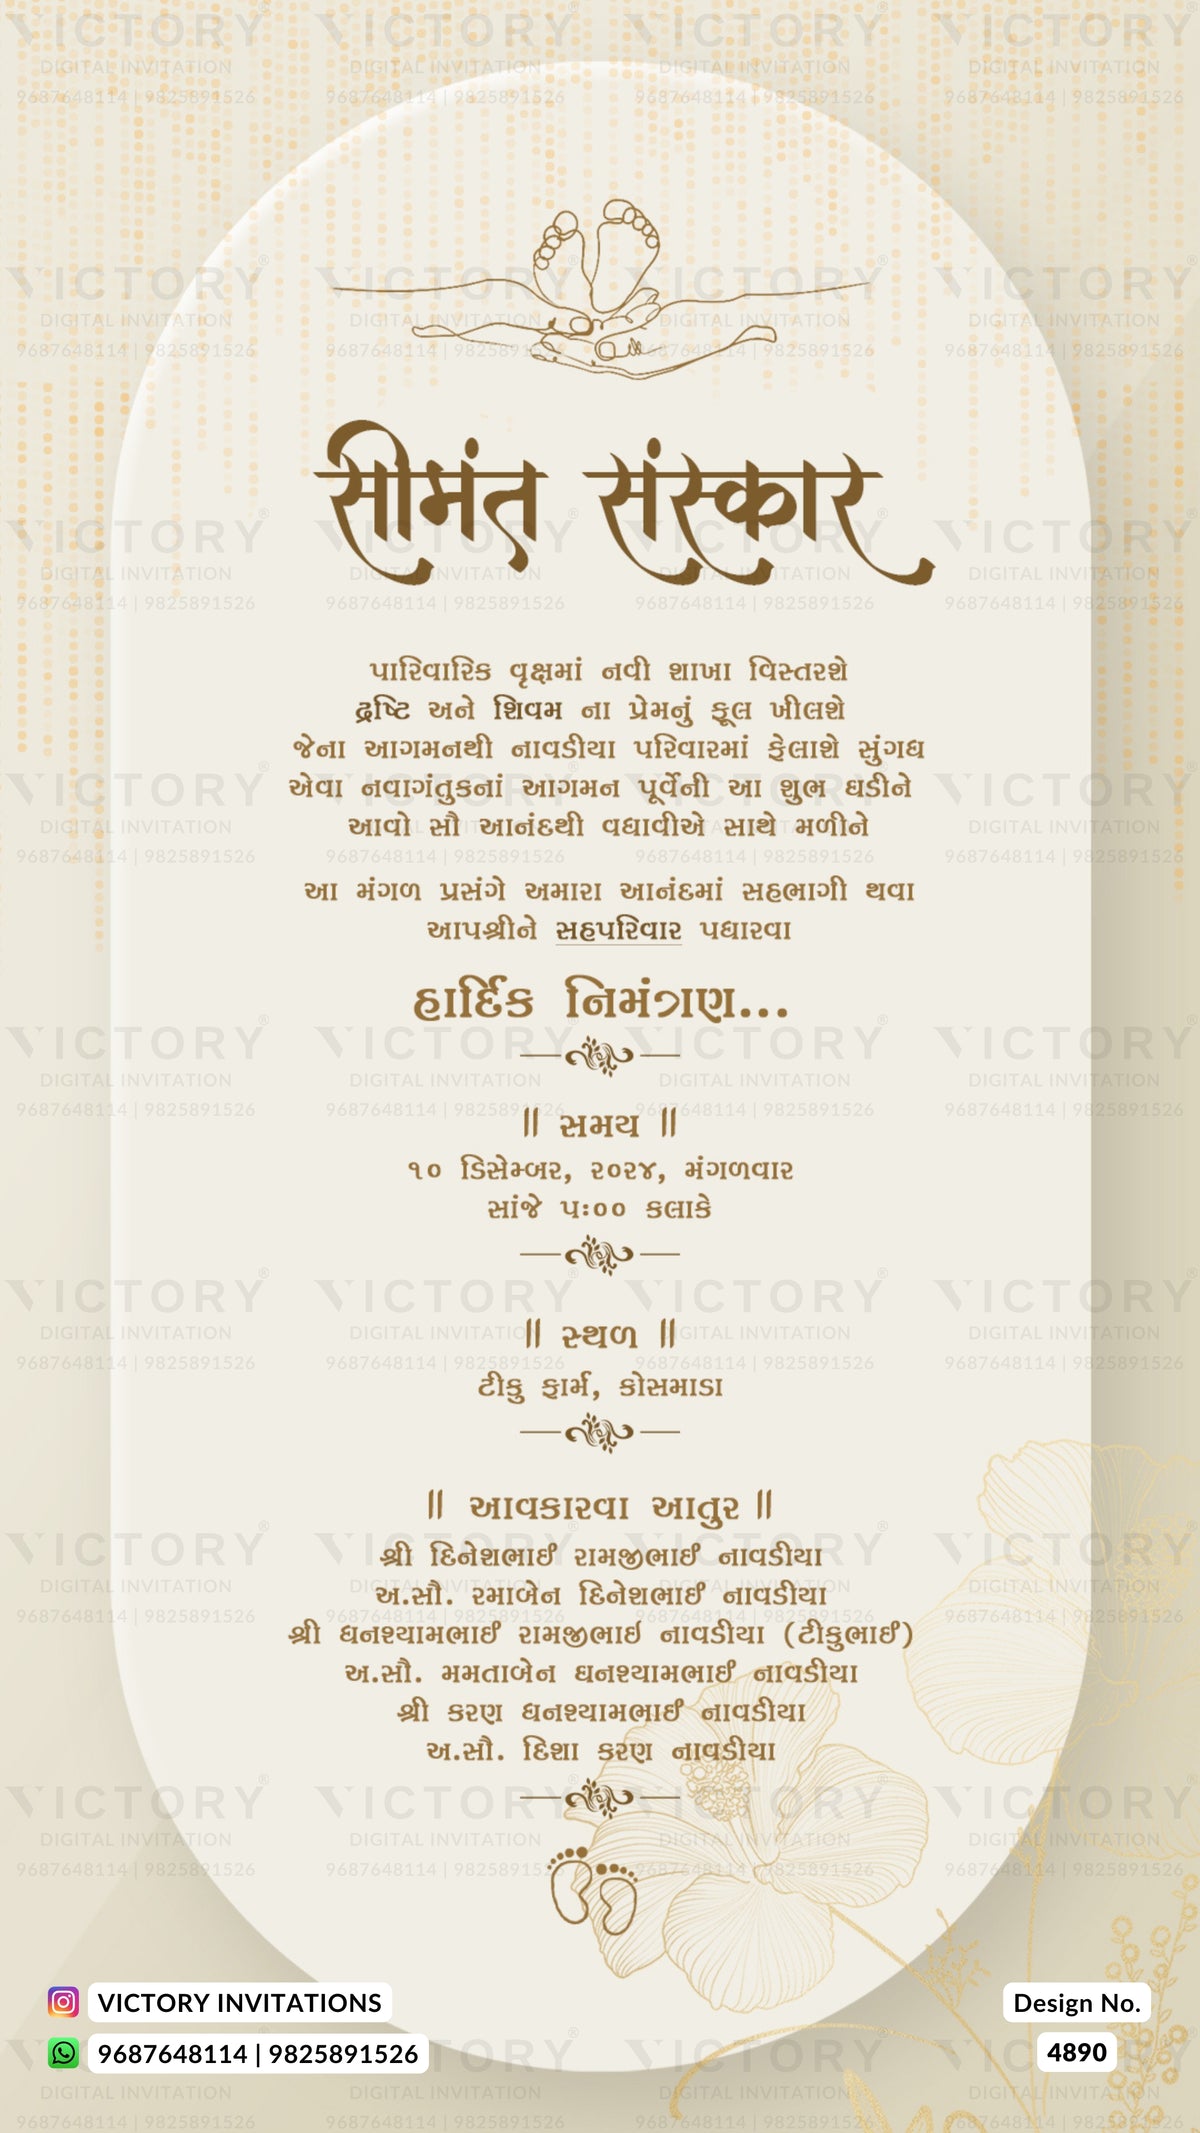 सीमंत संस्कार
પારિવારિક વૃક્ષમાં નવી શાખા વિસ્તરશે
દ્રષ્ટિ અને શિવમ ના પ્રેમનું ફૂલ ખીલશે
જેના આગમનથી નાવડીયા પરિવારમાં ફેલાશે સુંગધ
એવા નવાગંતુકનાં આગમન પૂર્વેની આ શુભ ઘડીને
આવો સૌ આનંદથી વધાવીએ સાથે મળીને
આ મંગળ પ્રસંગે અમારા આનંદમાં સહભાગી થવા
આપશ્રીને સહપરિવાર પધારવા
હાર્દિક નિમંત્રણ...
|| સમય ||
૧૦ ડિસેમ્બર, ૨૦૨૪, મંગળવાર
સાંજે ૫:૦૦ કલાકે
|| સ્થળ ||
ટીકુ ફાર્મ, કોસમાડા
|| આવકારવા આતુર ||
શ્રી દિનેશભાઈ રામજીભાઈ નાવડીયા
અ.સૌ. રમાબેન દિનેશભાઈ નાવડીયા
શ્રી ઘનશ્યામભાઈ રામજીભાઇ નાવડીયા (ટીકુભાઈ)
અ.સૌ. મમતાબેન ઘનશ્યામભાઈ નાવડીયા
શ્રી કરણ ઘનશ્યામભાઈ નાવડીયા
અ.સૌ. દિશા કરણ નાવડીયા
VICTORY INVITATIONS
9687648114 | 9825891526
Design No.
4890
VICTORY
DIGITAL INVITATION
9687648114 | 9825891526